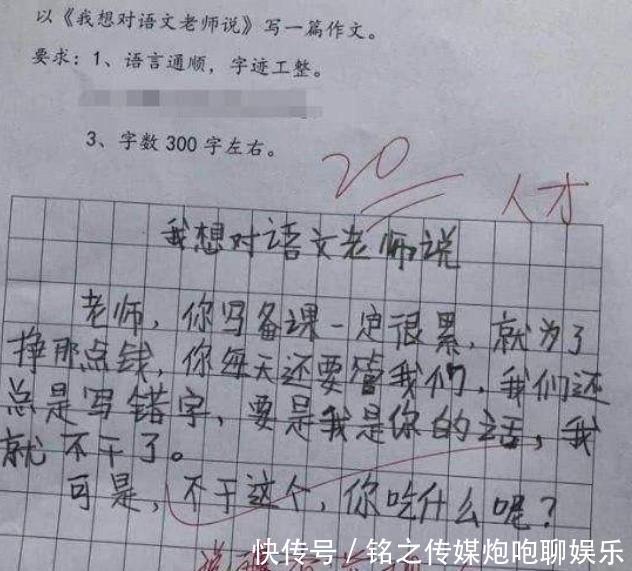 以《我想对语文老师说》写一篇作文。
要求：1、语言通顺，字迹工整。
3、字数 300 字左右。
20
人才
我想对语文老师说
老师，你写备课一定很累，就为了
挣那点钱，你每天还要管我们，我们还
总是写错字，要是我是你的话，我
就不干了。
可是，不干这个，你吃什么呢？
快传号／铭之传媒炮咆聊娱乐